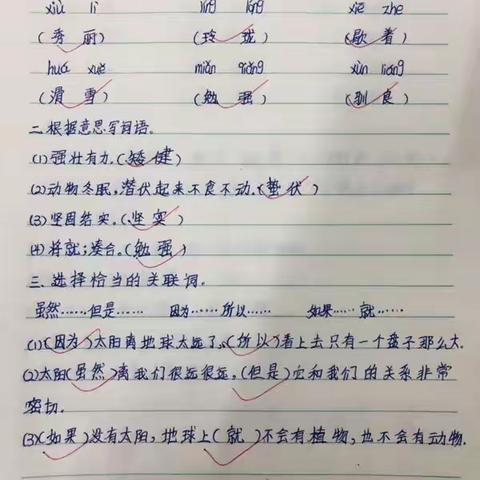 xiù lì líng lóng xiē zhe
(秀丽) (玲珑) (歇着)
huá xuě miǎn qiǎng xùn liáng
(滑雪) (勉强) (驯良)
二.根据意思写词语.
(1)强壮有力.(矫健)
(2)动物冬眠,潜伏起来不食不动.(蛰伏)
(3)坚固结实.(坚实)
(4)将就;凑合.(勉强)
三.选择恰当的关联词.
虽然……但是…… 因为……所以…… 如果……就……
(1)(因为)太阳离地球太远了,(所以)看上去只有一个盘子那么大.
(2)太阳(虽然)离我们很远很远,(但是)它和我们的关系非常
密切.
(3)(如果)没有太阳,地球上(就)不会有植物,也不会有动物.